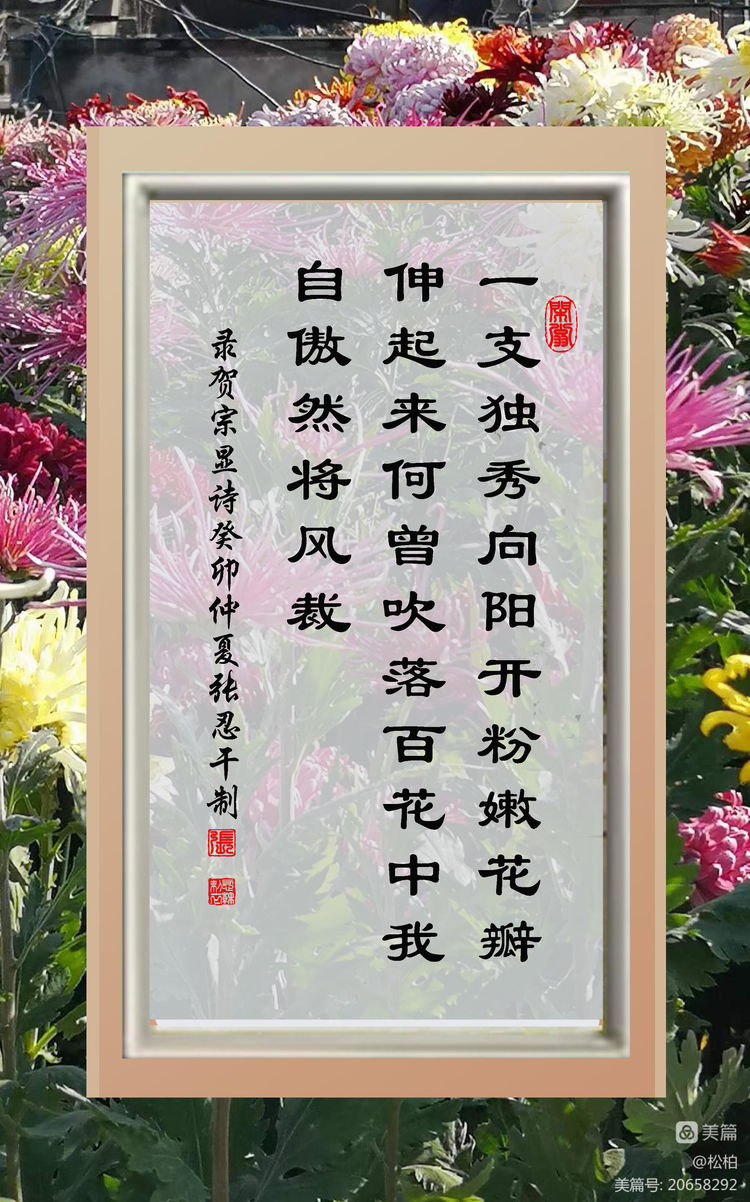 一支独秀向阳开粉嫩花瓣
伸起来何曾吹落百花中我
自傲然将风裁
录贺宗显诗癸卯仲夏张忍干制
張
美篇
@松柏
美篇号: 20658292